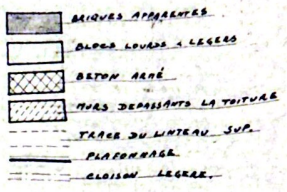 BRIQUES APPARENTES
BLOCS LOURDS & LEGERS
BETON ARMÉ
MURS DEPASSANTS LA TOITURE
TRACE DU LINTEAU SUP.
PLAFONNAGE
CLOISON LEGERE.